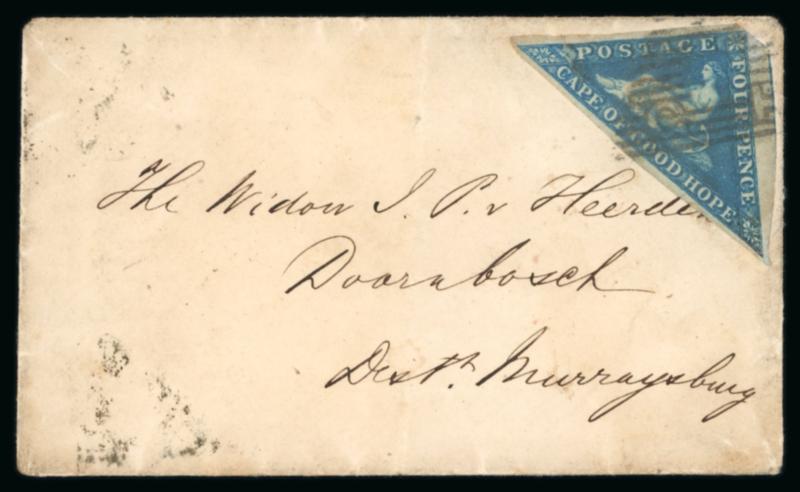 POSTAGE
CAPE OF GOOD HOPE
FOUR PENCE
The Widow J. P. v Heerden
Doornbosch
Distt. Murraysburg